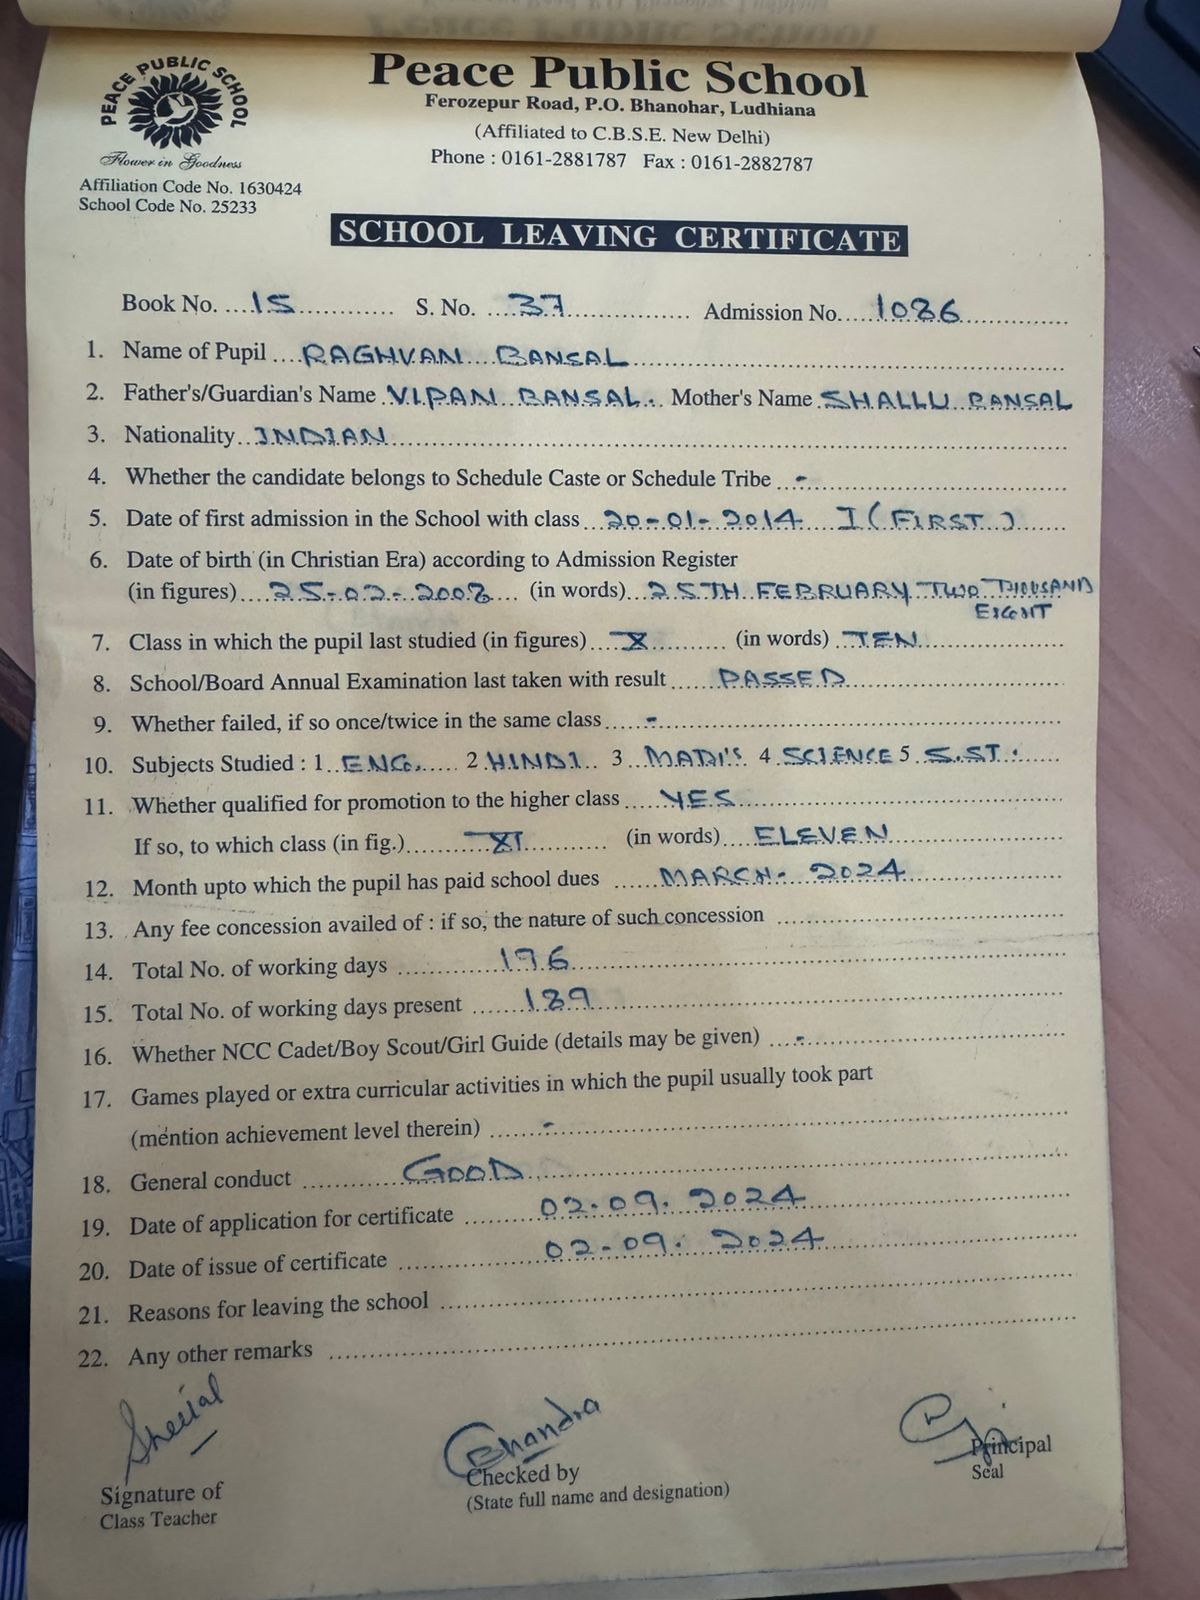 PEACE PUBLIC SCHOOL
Flower in Goodness
Affiliation Code No. 1630424
School Code No. 25233
Peace Public School
Ferozepur Road, P.O. Bhanohar, Ludhiana
(Affiliated to C.B.S.E. New Delhi)
Phone : 0161-2881787 Fax : 0161-2882787
SCHOOL LEAVING CERTIFICATE
Book No. 15 S. No. 37 Admission No. 1086
1. Name of Pupil RAGHVAN BANSAL
2. Father's/Guardian's Name VIPAN BANSAL. Mother's Name SHALLU BANSAL
3. Nationality INDIAN
4. Whether the candidate belongs to Schedule Caste or Schedule Tribe -
5. Date of first admission in the School with class 20-01-2014 I (FIRST)
6. Date of birth (in Christian Era) according to Admission Register
(in figures) 25-02-2008 (in words) 25TH FEBRUARY TWO THOUSAND
EIGHT
7. Class in which the pupil last studied (in figures) X (in words) TEN
8. School/Board Annual Examination last taken with result PASSED
9. Whether failed, if so once/twice in the same class -
10. Subjects Studied : 1 ENG. 2 HINDI 3 MATH'S 4 SCIENCE 5 S.ST.
11. Whether qualified for promotion to the higher class YES
If so, to which class (in fig.) XI (in words) ELEVEN
12. Month upto which the pupil has paid school dues MARCH-2024
13. Any fee concession availed of : if so, the nature of such concession
14. Total No. of working days 196
15. Total No. of working days present 189
16. Whether NCC Cadet/Boy Scout/Girl Guide (details may be given) -
17. Games played or extra curricular activities in which the pupil usually took part
(mention achievement level therein) -
18. General conduct GOOD
19. Date of application for certificate 02.09.2024
20. Date of issue of certificate 02-09.2024
21. Reasons for leaving the school
22. Any other remarks
Chandra
Signature of
Class Teacher
Checked by
(State full name and designation)
Principal
Seal